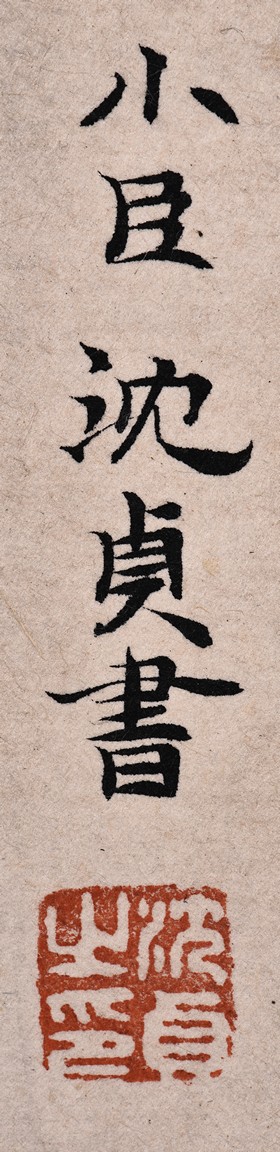 小臣沈貞書
沈貞
之印